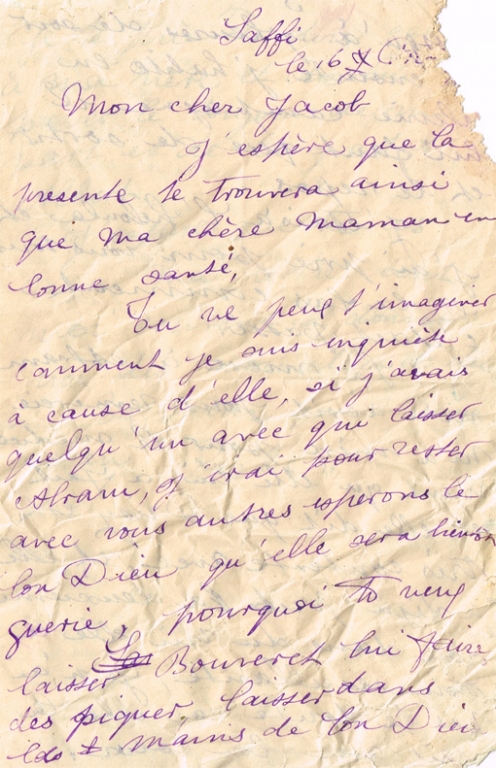 Saffi
le 16
Mon cher Jacob
J'espère que la
presente te trouvera ainsi
que ma chère maman en
bonne santé,
Tu ne peus t'imaginer
comment je suis inquiète
à cause d'elle, si j'avais
quelqu'un avec qui laisser
Abram, j'irai pour rester
avec vous autres esperons le
bon Dieu qu'elle sera bientôt
guerie, pourquoi tu veus
laisser Bouveret lui faire
des piquer, laisser dans
les mains de bon Dieu